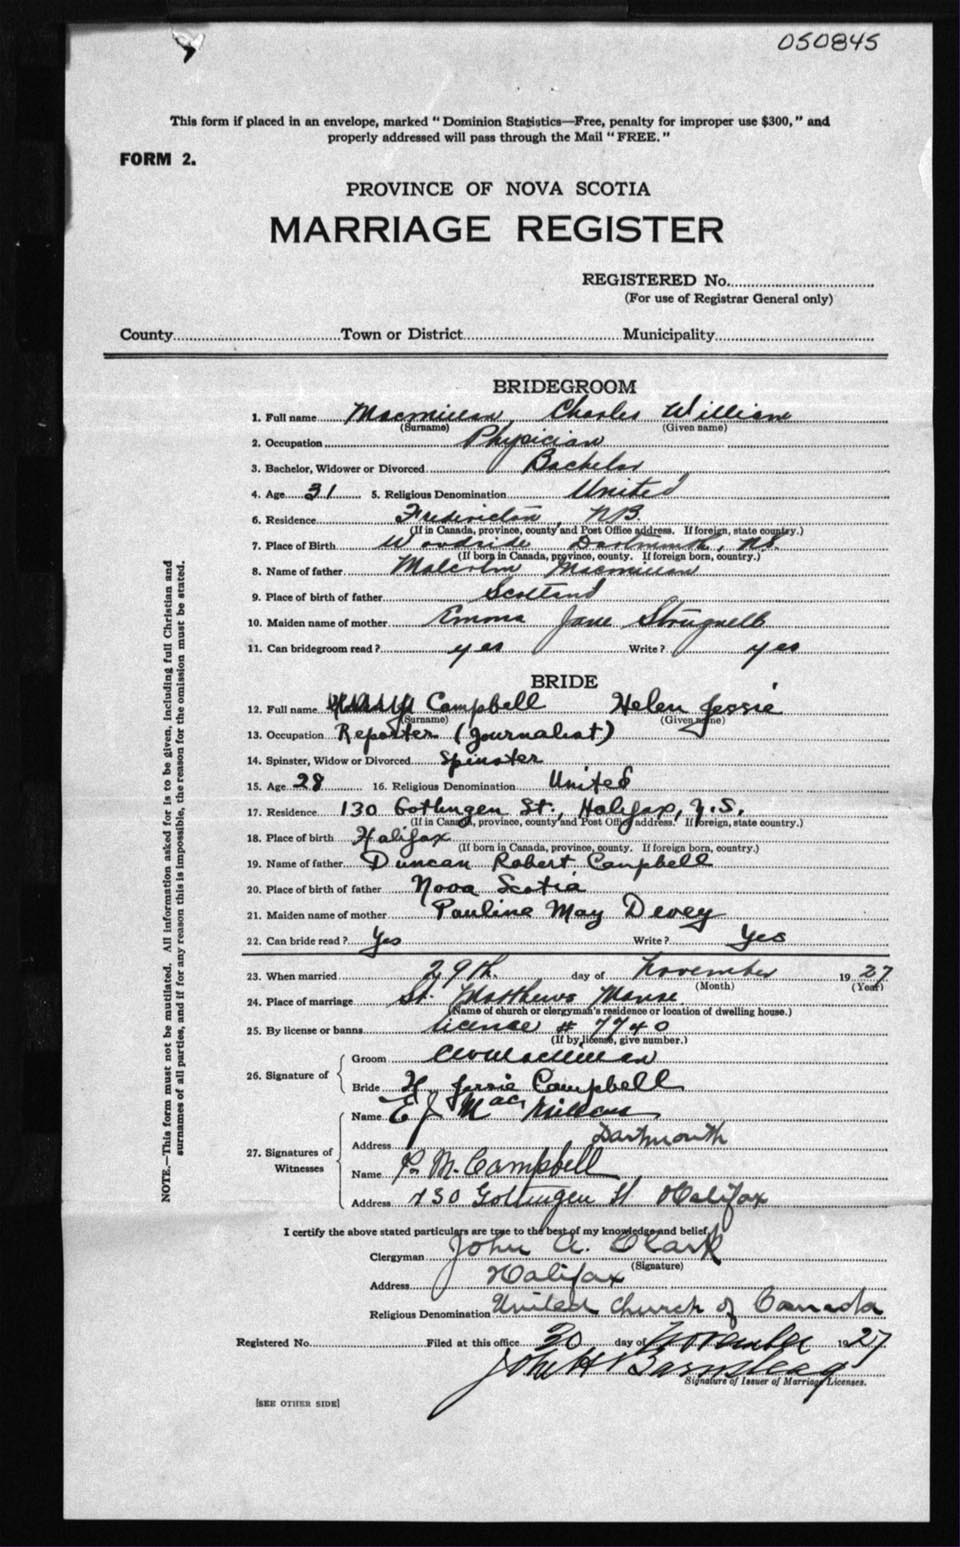 050845
This form if placed in an envelope, marked "Dominion Statistics—Free, penalty for improper use $300," and
properly addressed will pass through the Mail "FREE."
FORM 2.
PROVINCE OF NOVA SCOTIA
MARRIAGE REGISTER
REGISTERED No.
(For use of Registrar General only)
County Town or District Municipality
BRIDEGROOM
1. Full name Macmillan Charles William
(Surname) (Given name)
2. Occupation Physician
3. Bachelor, Widower or Divorced Bachelor
4. Age 31 5. Religious Denomination United
6. Residence Fredericton, N.B.
(If in Canada, province, county and Post Office address. If foreign, state country.)
7. Place of Birth Woodside Dartmouth, N.S.
(If born in Canada, province, county. If foreign born, country.)
8. Name of father Malcolm Macmillan
9. Place of birth of father Scotland
10. Maiden name of mother Emma Jane Strugnell
11. Can bridegroom read? yes Write? yes
BRIDE
12. Full name Campbell Helen Jessie
(Surname) (Given name)
13. Occupation Reporter (Journalist)
14. Spinster, Widow or Divorced Spinster
15. Age 28 16. Religious Denomination United
17. Residence 130 Gottingen St., Halifax, N.S.
(If in Canada, province, county and Post Office address. If foreign, state country.)
18. Place of birth Halifax
(If born in Canada, province, county. If foreign born, country.)
19. Name of father Duncan Robert Campbell
20. Place of birth of father Nova Scotia
21. Maiden name of mother Pauline May Devey
22. Can bride read? Yes Write? Yes
23. When married 29th. day of November 1927
(Month) (Year)
24. Place of marriage St. Matthews Manse
(Name of church or clergyman's residence or location of dwelling house.)
25. By license or banns license # 7740
(If by license, give number.)
26. Signature of Groom CWMacmillan
Bride H. Jessie Campbell
27. Signatures of Witnesses Name E J MacMillan
Address Dartmouth
Name P. M. Campbell
Address 130 Gottingen St Halifax
I certify the above stated particulars are true to the best of my knowledge and belief,
Clergyman John A. Clark
(Signature)
Address Halifax
Religious Denomination United Church of Canada
Registered No. Filed at this office 30 day of November 1927
John H Barnstead
Signature of Issuer of Marriage Licenses.
[SEE OTHER SIDE]
NOTE.—This form must not be mutilated. All information asked for is to be given, including full Christian and
surnames of all parties, and if for any reason this is impossible, the reason for the omission must be stated.